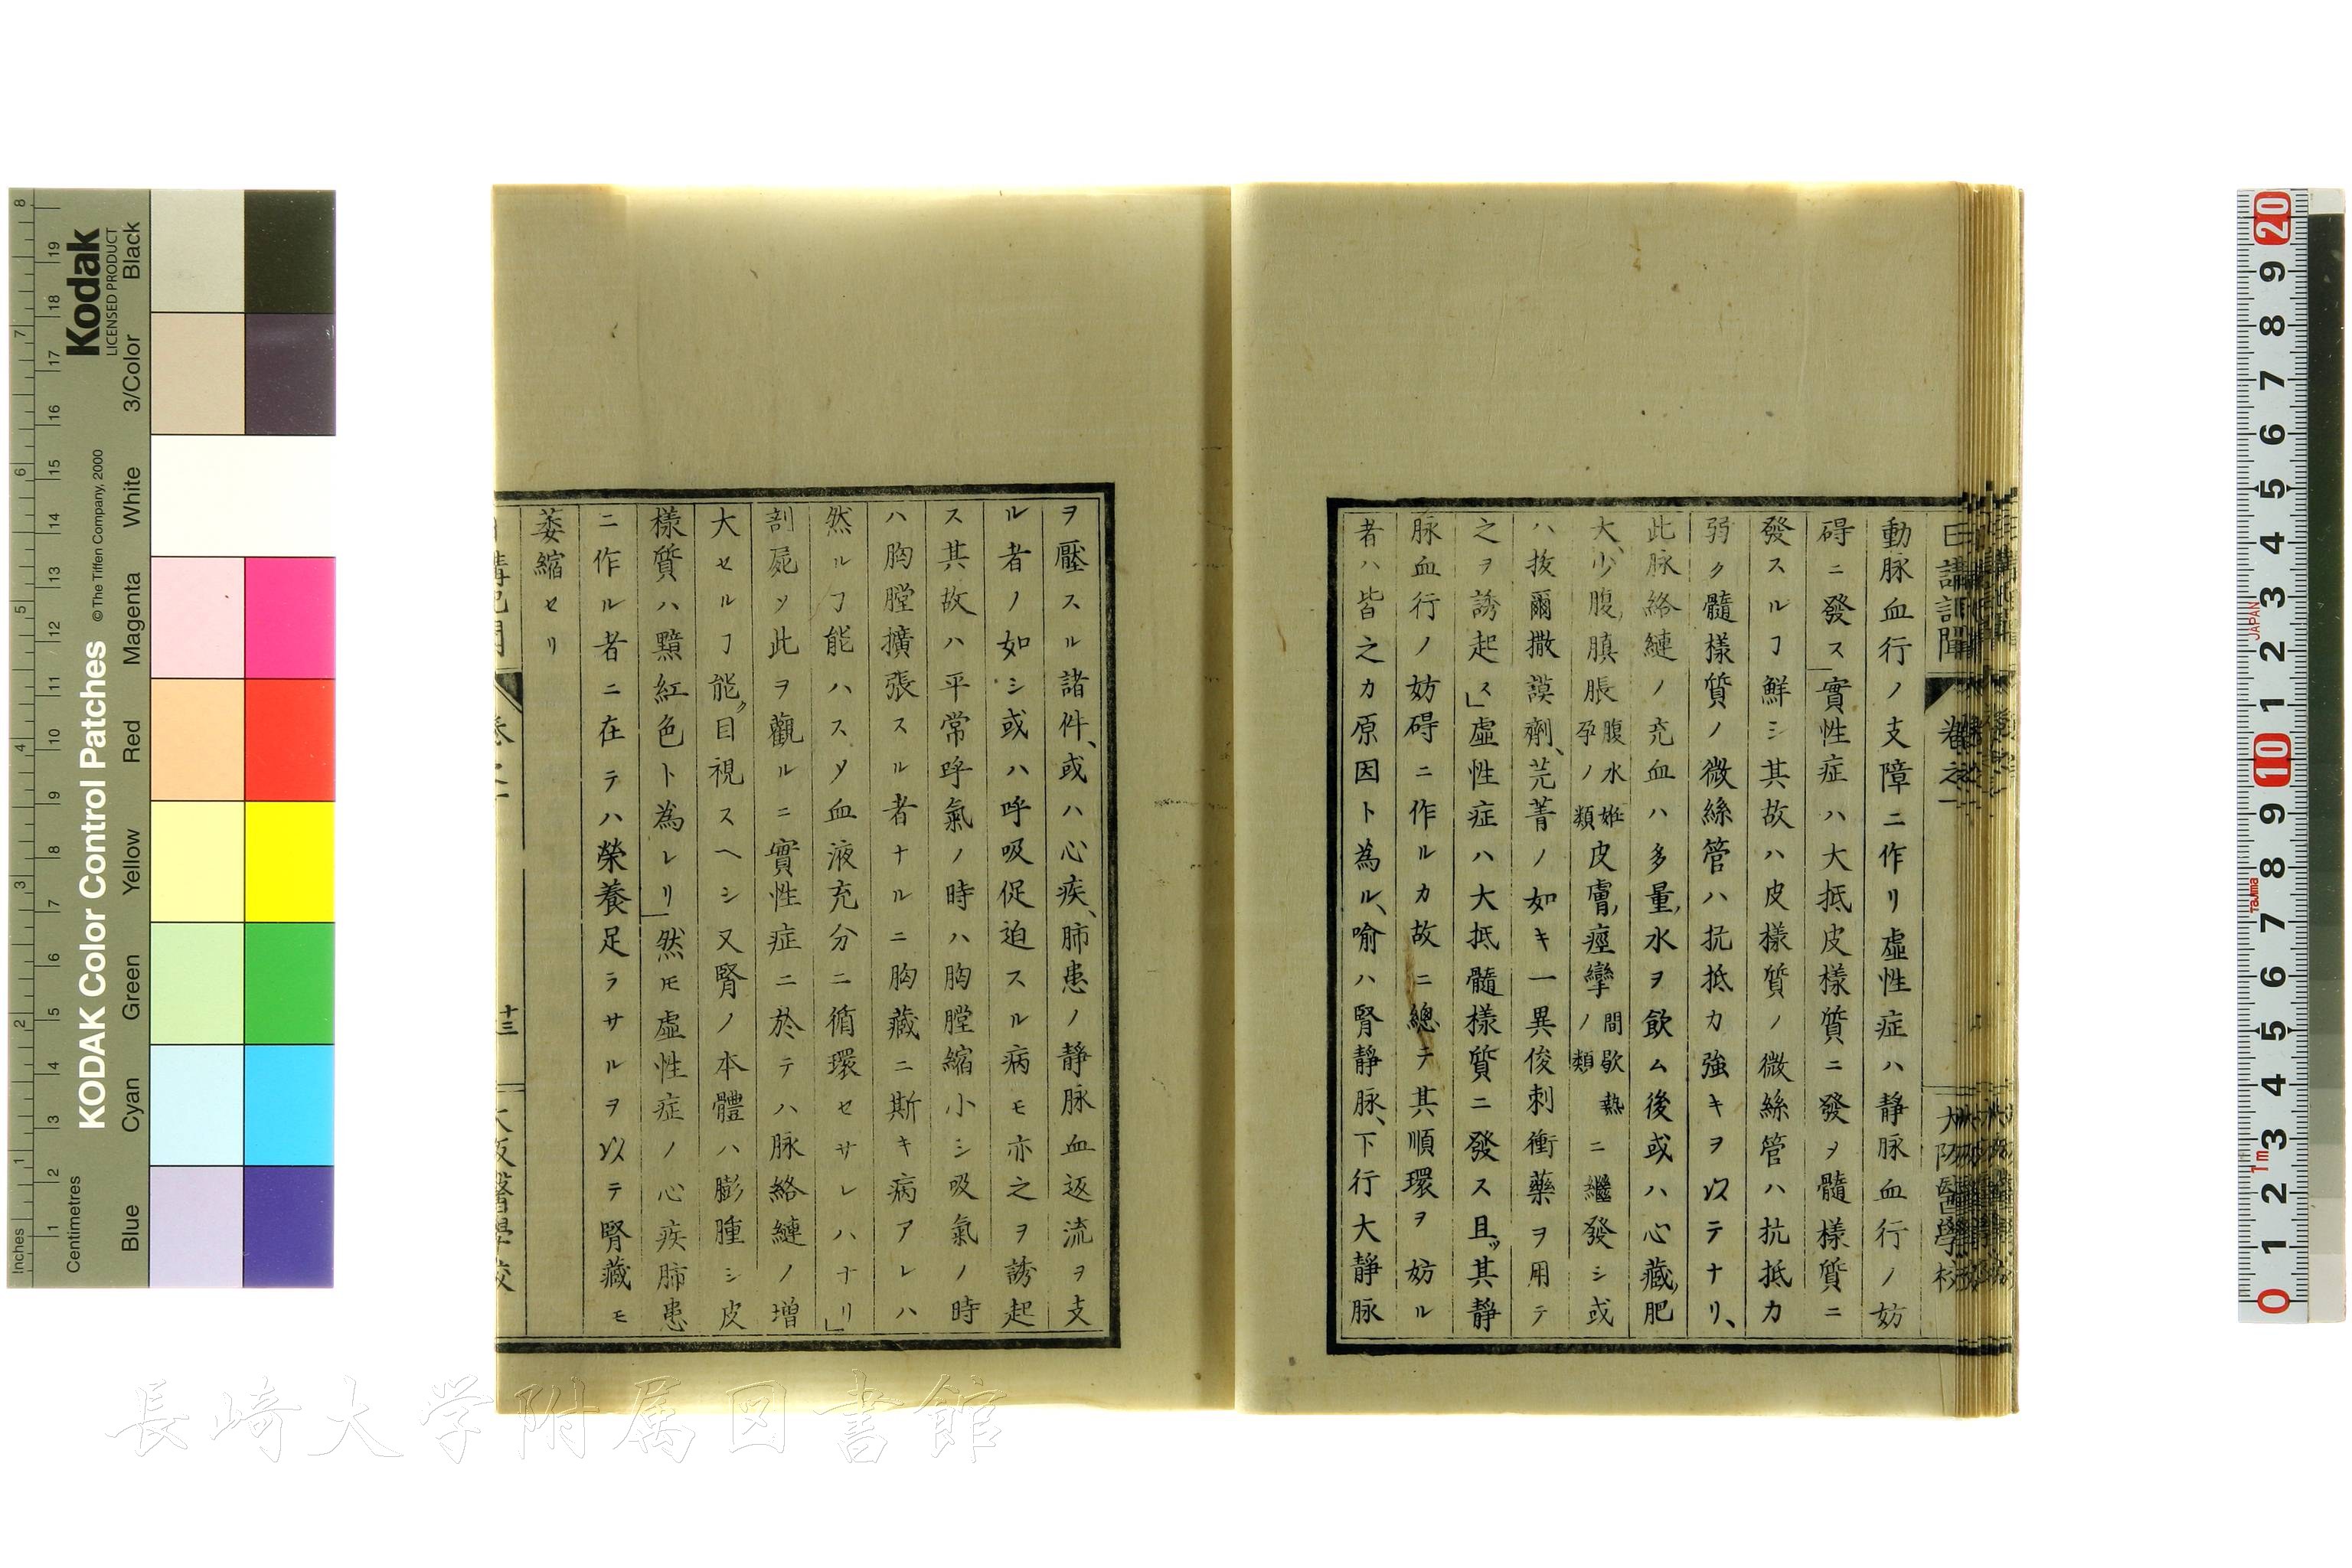 動脉血行ノ支障ニ作リ虚性症ハ静脉血行ノ妨
碍ニ發ス實性症ハ大抵皮様質ニ發ヲ髓様質ニ
發スルヿ鮮シ其故ハ皮様質ノ微絲管ハ抗抵カ
弱ク髓様質ノ微絲管ハ抗抵カ強キヲ以テナリ、
此脉絡縺ノ充血ハ多量水ヲ飲ム後或ハ心藏肥
大、少腹䐜脹腹水姙孕ノ類皮膚痙攣間歇熱ノ類ニ繼發シ或
ハ拔爾撒謨劑、芫菁ノ如キ一異俊刺衝藥ヲ用テ
之ヲ誘起ス」虚性症ハ大抵髓様質ニ發ス且ツ其静
脉血行ノ妨碍ニ作ルカ故ニ總テ其順環ヲ妨ル
者ハ皆之カ原因ト為ル、喻ハ腎静脉、下行大静脉
ヲ壓スル諸件、或ハ心疾、肺患ノ静脉血返流ヲ支
ル者ノ如シ或ハ呼吸促迫スル病モ亦之ヲ誘起
ス其故ハ平常呼氣ノ時ハ胸膛縮小シ吸氣ノ時
ハ胸膛擴張スル者ナルニ胸藏ニ斯キ病アレハ
然ルヿ能ハスメ血液充分ニ循環セサレハナリ」
剖屍ソ此ヲ觀ルニ實性症ニ於テハ脉絡縺ノ増
大セルヿ能ク目視スヘシ又腎ノ本體ハ膨腫シ皮
様質ハ黯紅色ト為レリ」然モ虚性症ノ心疾肺患
ニ作ル者ニ在テハ榮養足ラサルヲ以テ腎藏モ
萎縮セリ
日講記聞
卷之
大阪醫學校
十三
KODAK Color Control Patches
©The Tiffen Company, 2000
Kodak
LICENSED PRODUCT
Inches
Centimetres
Blue Cyan Green Yellow Red Magenta White 3/Color Black
JAPAN
Tajima
1m
長崎大学附属図書館